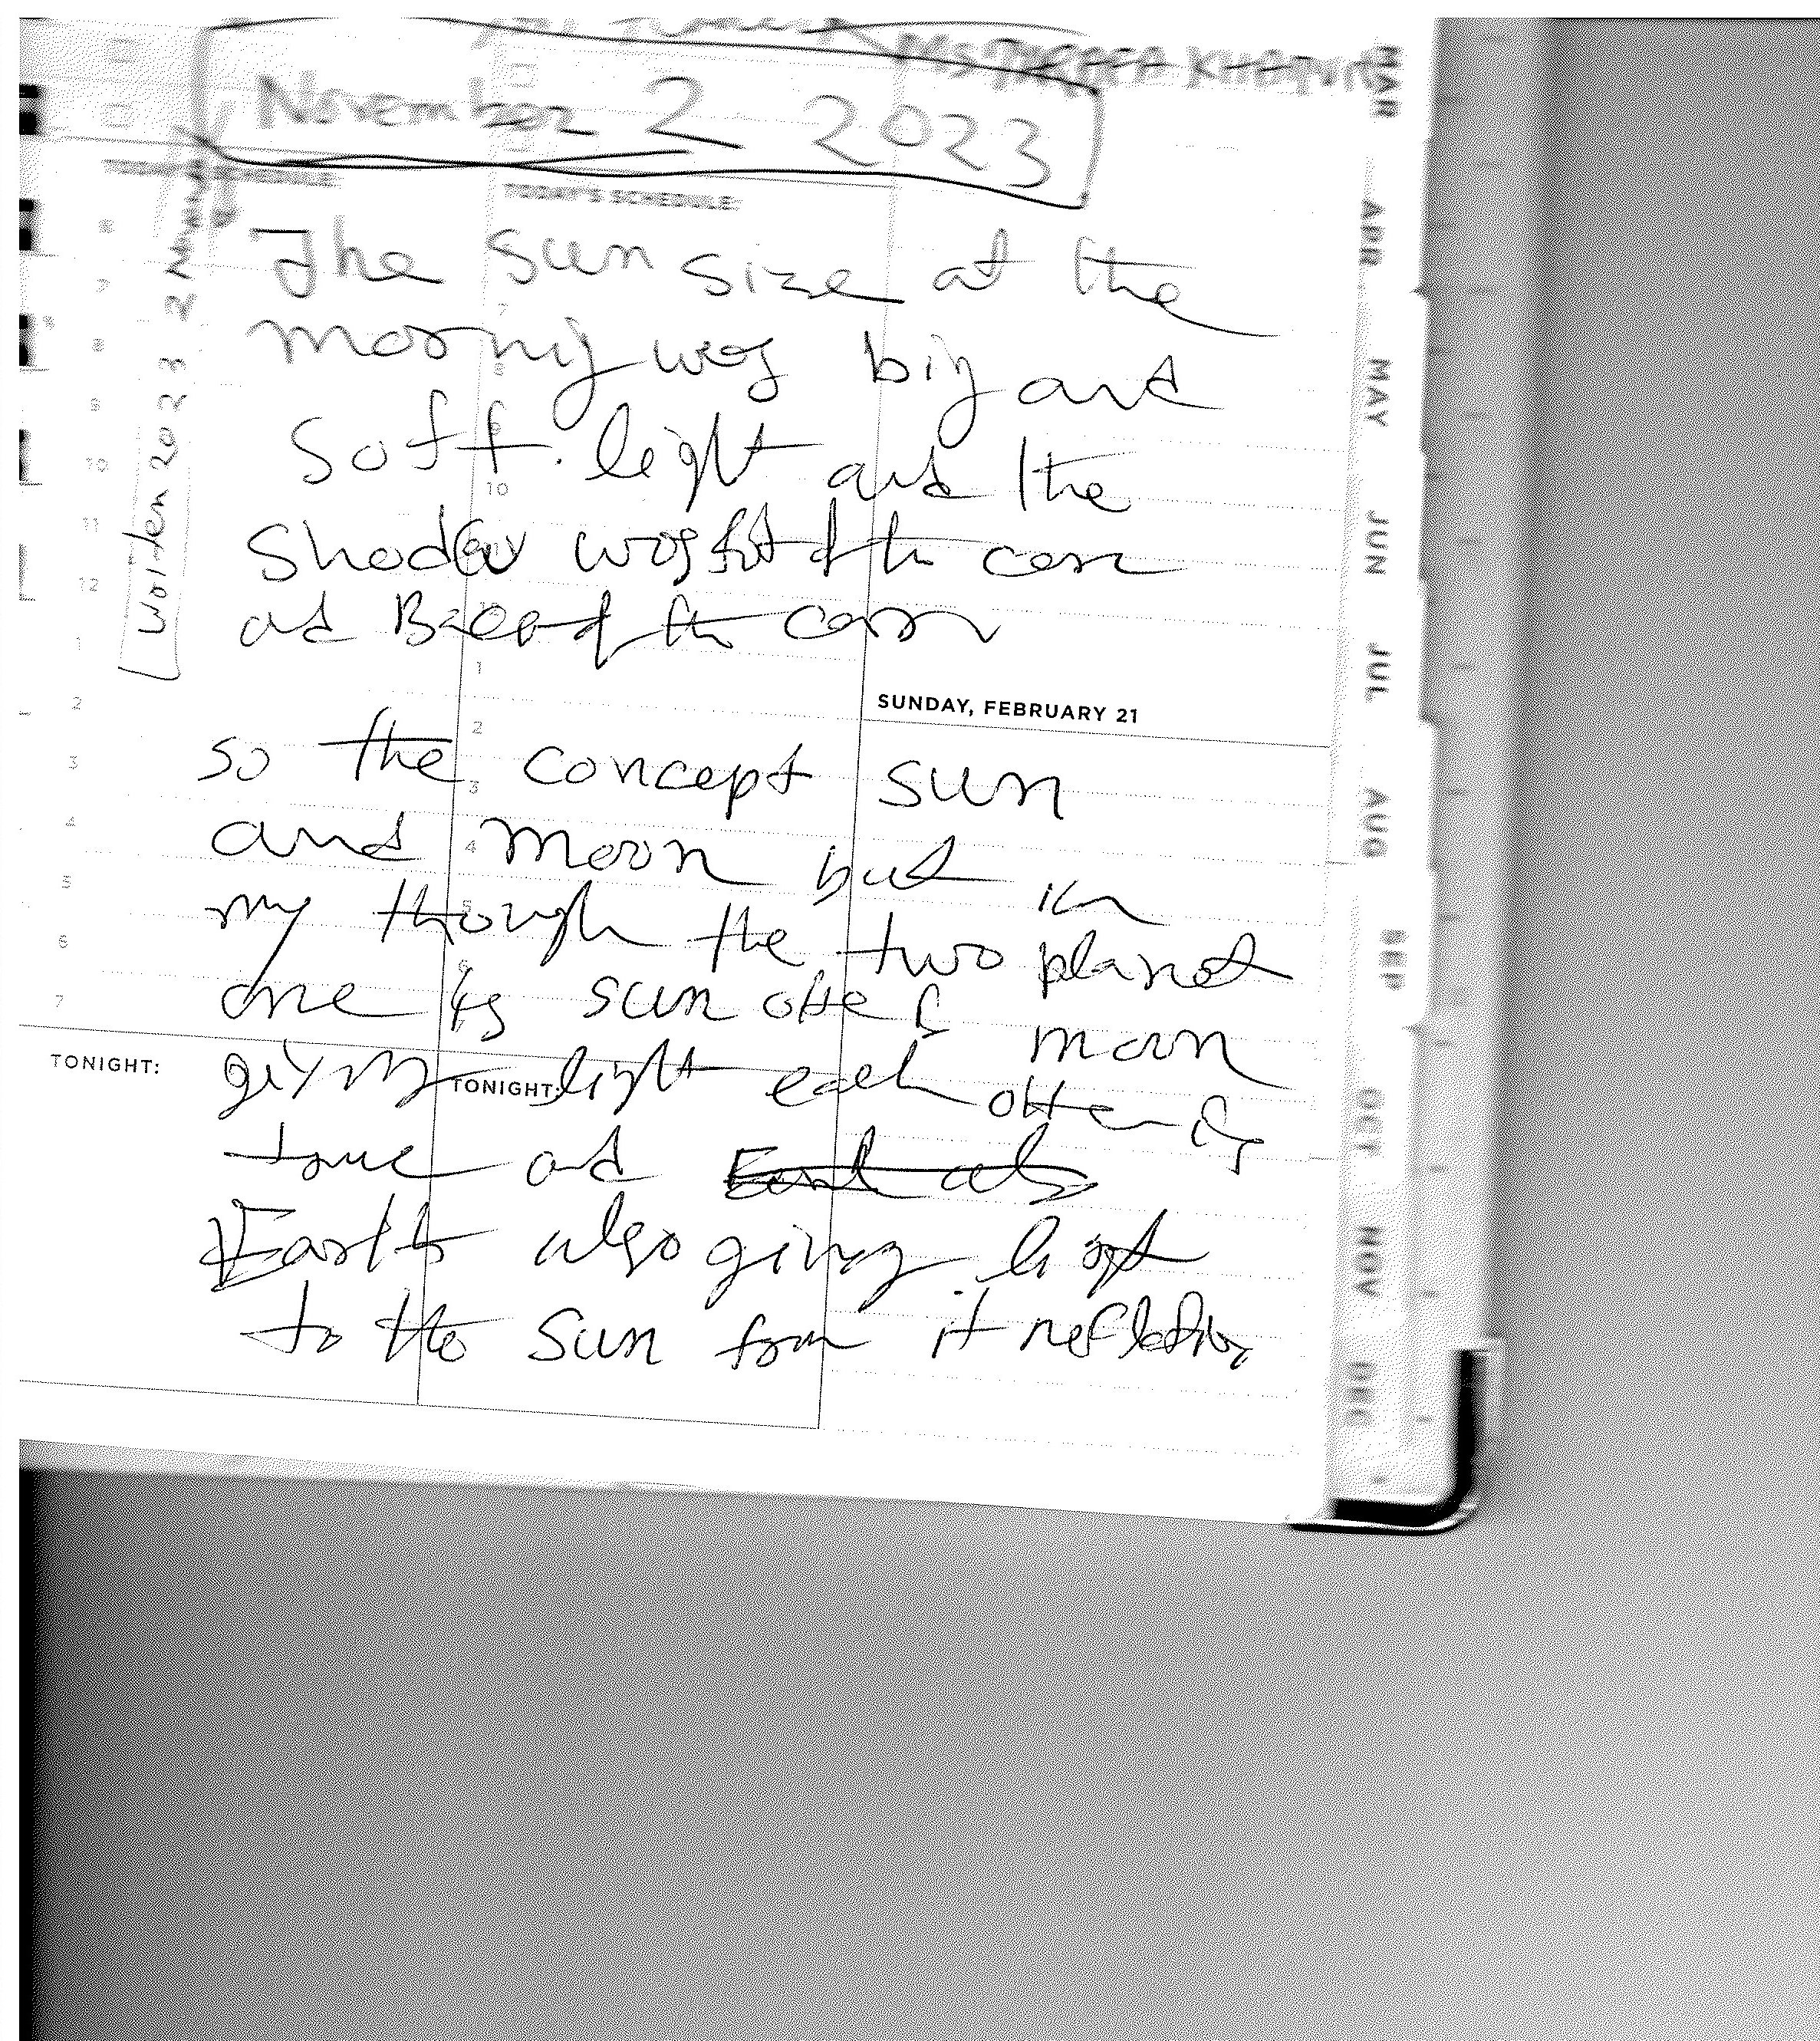 November 2 2023
TODAY'S SCHEDULE:
TODAY'S SCHEDULE:
The sun size at the
morning was big and
soft. light and the
Shadow was of the car
ad of the car
SUNDAY, FEBRUARY 21
so the concept sun
and moon but in
my though the two planet
one is sun other moon
giving light each other is
true ad
Earth also giving light
to the sun from it reflection
TONIGHT:
TONIGHT:
6
7
8
9
10
11
12
1
2
3
4
5
6
7
7
8
9
10
1
2
3
4
5
6
Woiten 2023 2
MAR
APR
MAY
JUN
JUL
AUG
SEP
OCT
NOV
DEC